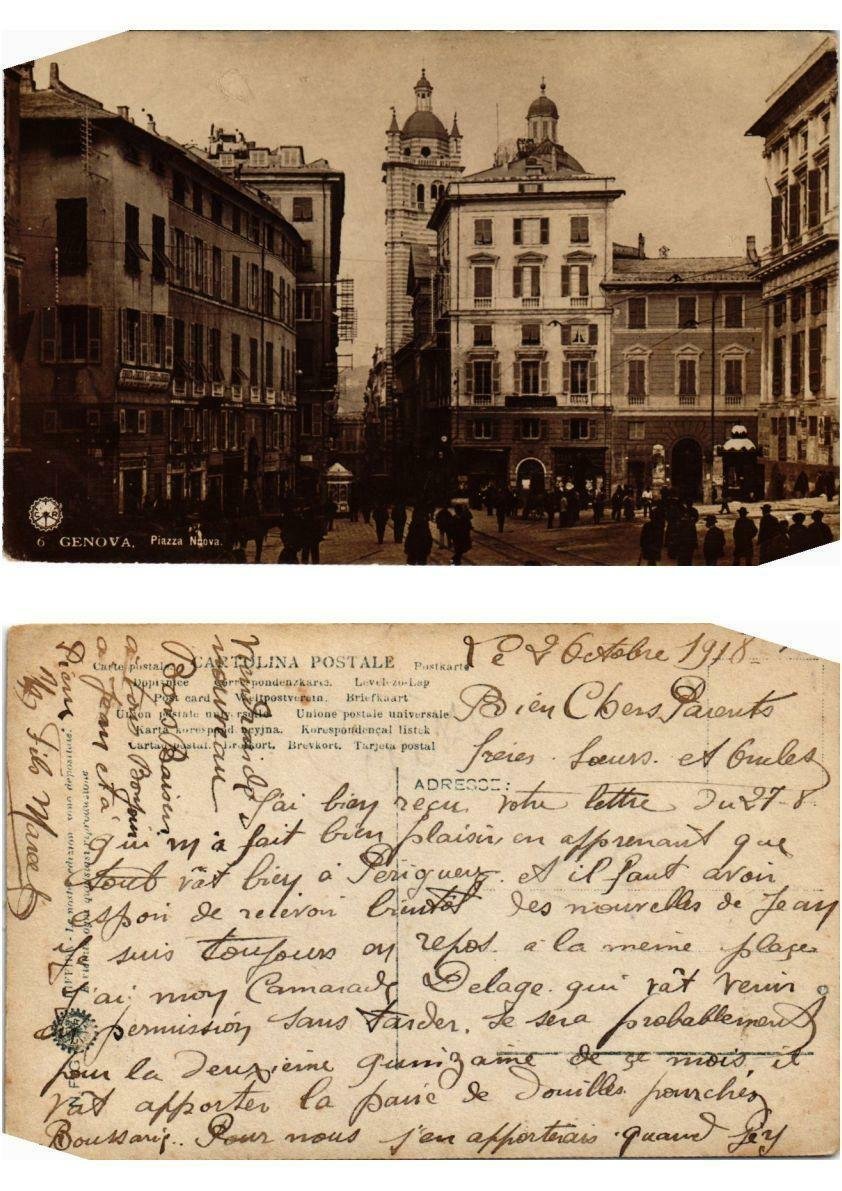 6 GENOVA. Piazza Nuova.
Le 2 Octobre 1918
Carte postale. CARTOLINA POSTALE Postkarte
Dopisnice Correspondenzkarte. Levelezo-Lap
Post card Weltpostverein. Briefkaart
Union postale universelle Unione postale universale
Karta korespondencyjna. Korespondencal listek
Cartao postal. Brefkort. Brevkort. Tarjeta postal
ADRESSE:
Bien Chers Parents
frères. Sœurs. et Oncles
J'ai bien reçu votre lettre Du 27-8
qui m'a fait bien plaisir en apprenant que
tout vat bien à Perigueux. et il faut avoir
espoir de recevoir bientôt des nouvelles de Jean
je suis toujours en repos à la meme place
j'ai mon Camarade Delage qui vat venir
en permission sans tarder. Se sera probablement
pour la deuxieme quinzaine de ce mois il
vat apporter la paire de Douilles pour chez
Boussarie. Pour nous j'en apporterais quand j'ey
à tous Bonjour
a Jean et à
Pierre
Fils Marcel